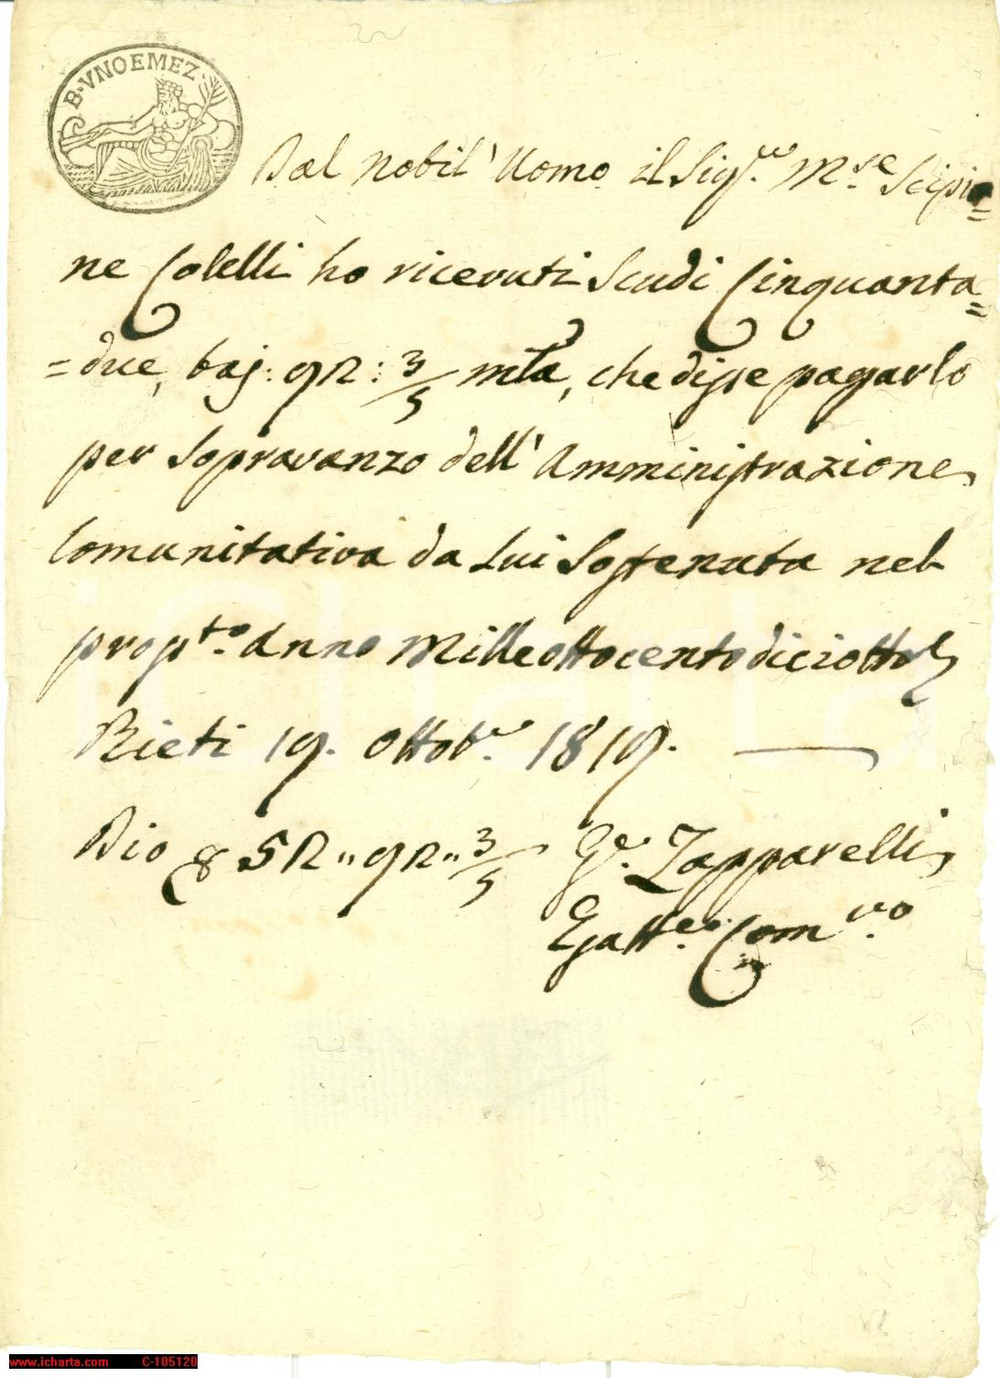 B. VNOEMEZ.
Dal Nobil' Uomo il Sig.re M.se Scipio=
ne Colelli ho ricevuti Scudi Cinquanta=
=due, baj: 92: 3/5 mta, che disse pagarlo
per Sopravanzo dell' Amministrazione
Comunitativa da Lui Sostenuta nel
prop.to Anno Milleottocentodiciotto
Rieti 19. Ottob.e 1819.
Dio 52,, 92,, 3/5 G.e Zapparelli
Esatt.e Com.vo
www.icharta.com C-105120